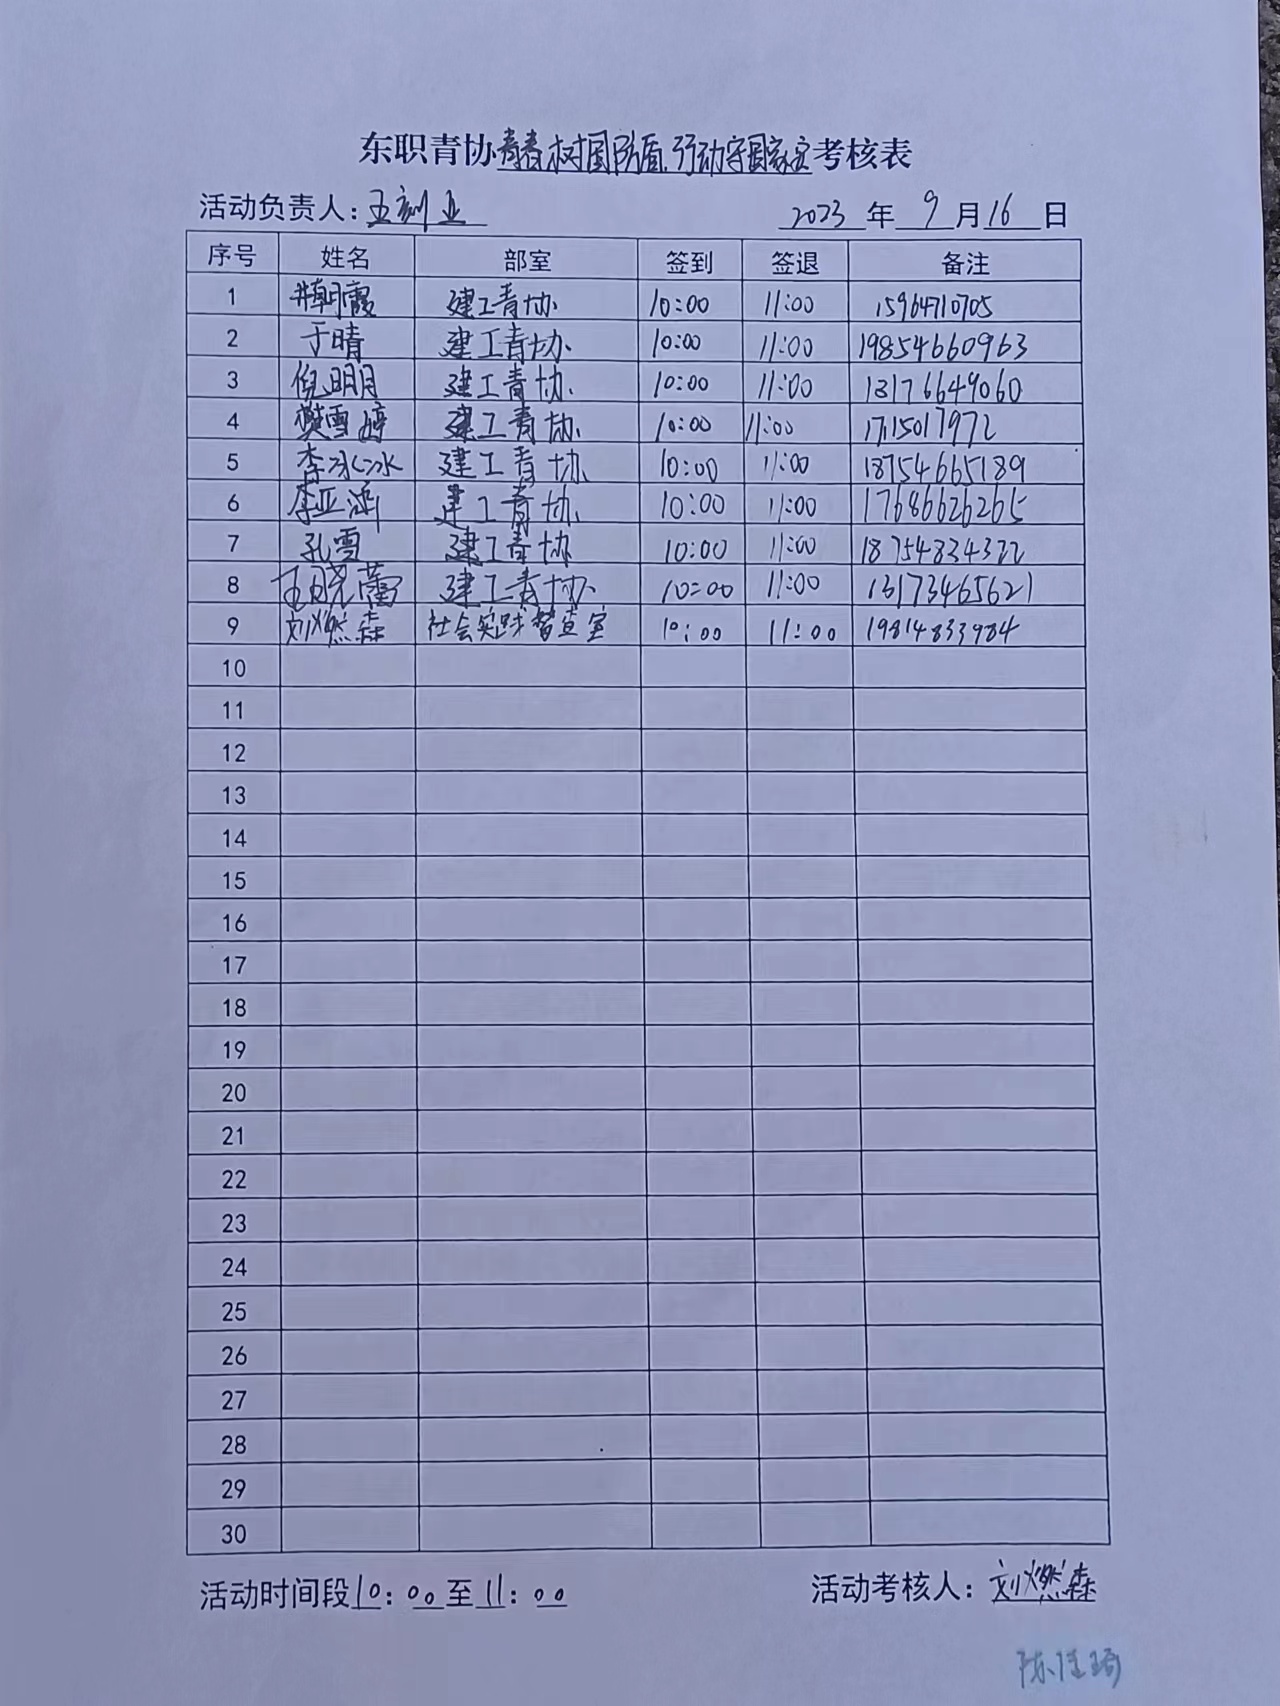 东职青协青春树国防盾,行动守国家安考核表
活动负责人: 王刻亚 2023 年 9 月 16 日
序号 姓名 部室 签到 签退 备注
1 韩明霞 建工青协 10:00 11:00 15964710705
2 于晴 建工青协 10:00 11:00 19854660963
3 倪明月 建工青协 10:00 11:00 13176649060
4 樊雪婷 建工青协 10:00 11:00 17115017972
5 李冰冰 建工青协 10:00 11:00 18754665189
6 李亚涵 建工青协 10:00 11:00 17686626265
7 孔雪 建工青协 10:00 11:00 18754834322
8 王晓蕾 建工青协 10:00 11:00 13173465621
9 刘燃森 社会实践督查室 10:00 11:00 19814833984
10
11
12
13
14
15
16
17
18
19
20
21
22
23
24
25
26
27
28
29
30
活动时间段10:00至11:00 活动考核人: 刘燃森
陈佳琦